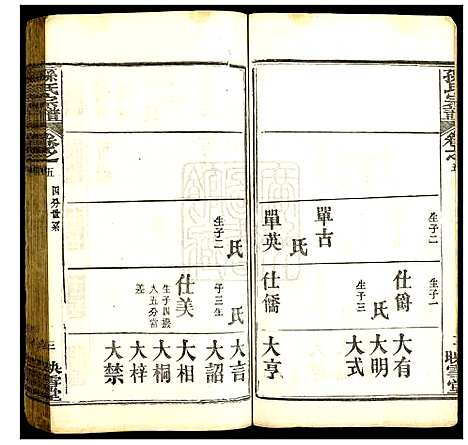 孫氏宗譜
卷之五
映雪堂
生子二
生子一
仕爵
大有
大明
氏
生子三
大式
單古
氏
單英
仕儒
大亨
生子二
氏
子三生
氏
大言
大詔
仕美
生子四撥
入五分富
差
大相
大桐
大梓
大禁
孫氏宗譜
卷之
五
四分世系
映雪堂